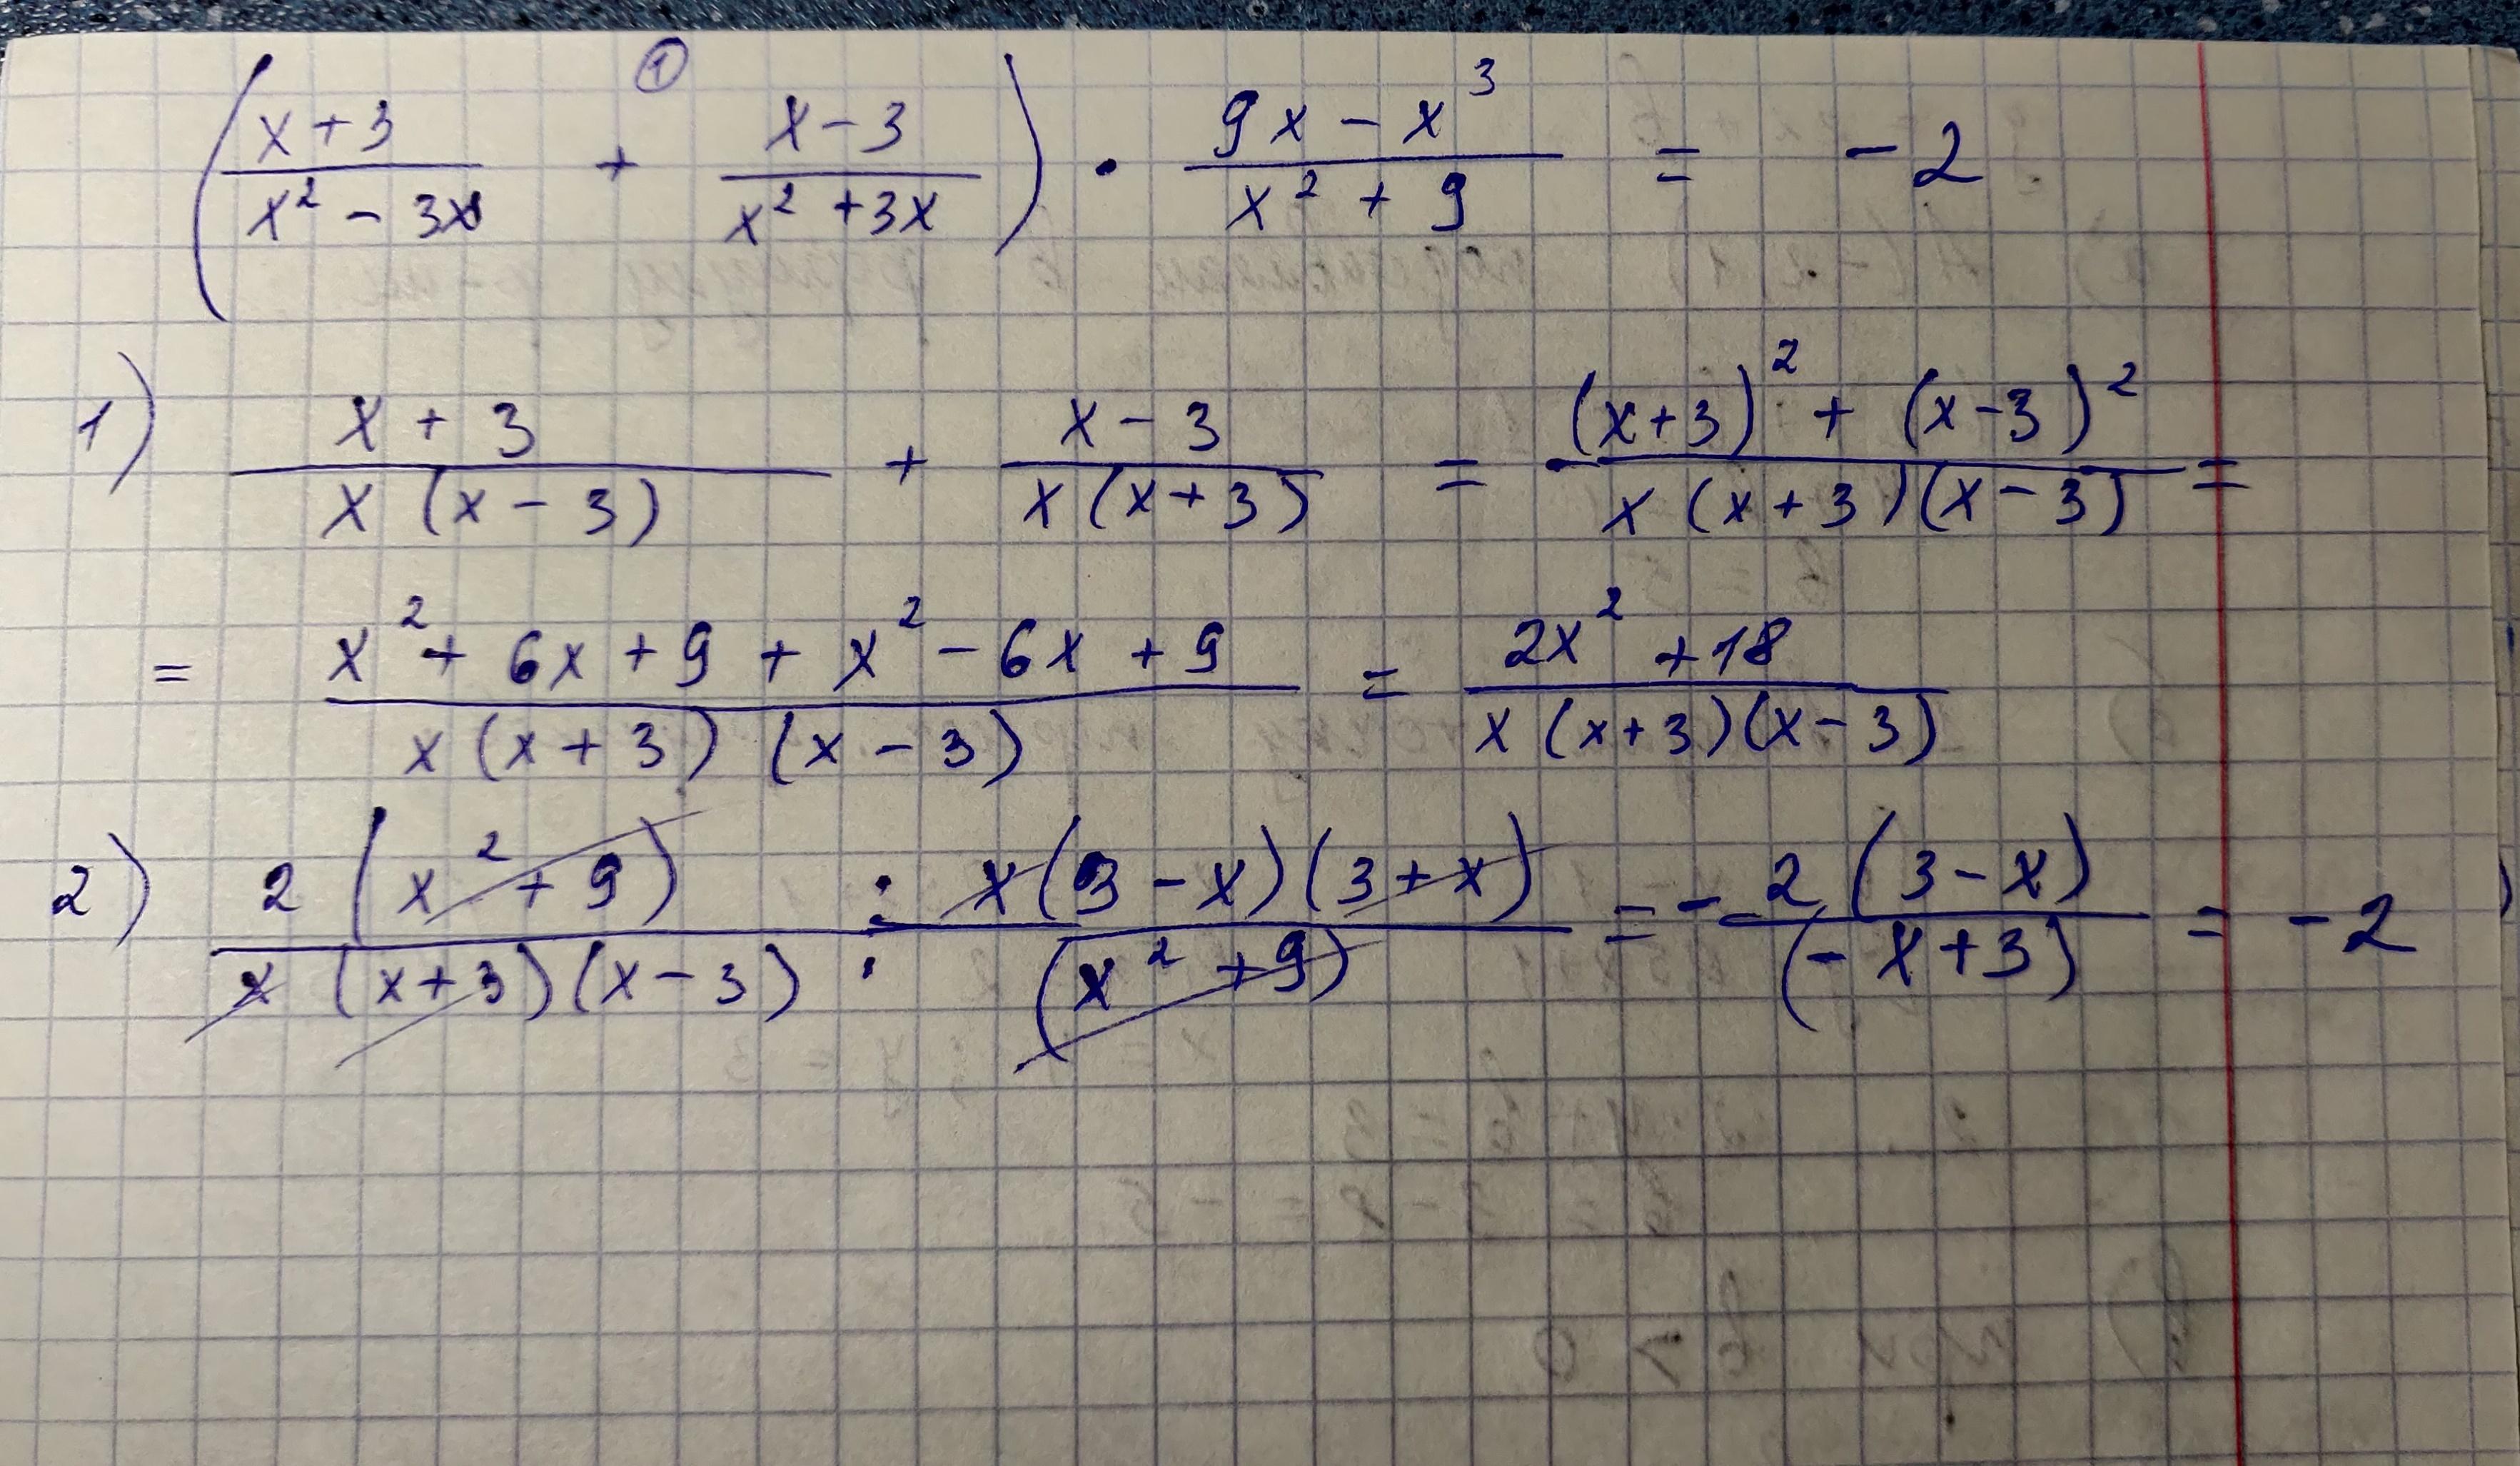 ①
( (x+3)/(x² - 3x) + (x-3)/(x² +3x) ) · (9x - x³)/(x² + 9) = -2
1) (x + 3)/(x (x - 3)) + (x - 3)/(x (x+3)) = ((x+3)² + (x-3)²)/(x (x+3)(x-3)) =
= (x² + 6x + 9 + x² - 6x + 9)/(x (x+3) (x-3)) = (2x² +18)/(x (x+3)(x-3))
2) (2 (x² + 9))/(x (x+3)(x-3)) : (x(3-x)(3+x))/((x² +9)) = - (2 (3-x))/((-x+3)) = -2